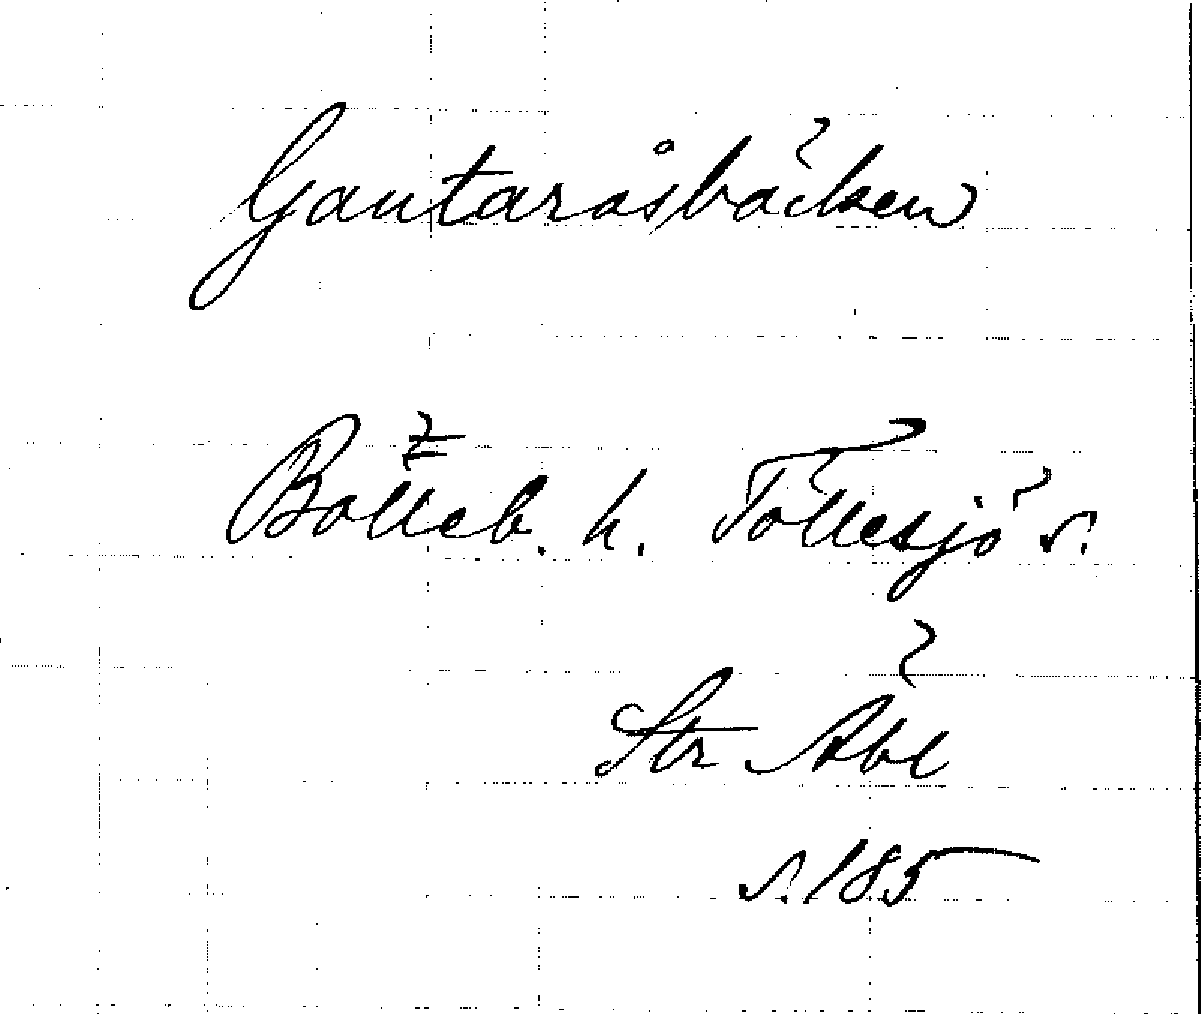 Gantaråsbäcken
Bölleb. h. Töllesjö s.
Str Äbl
s. 185